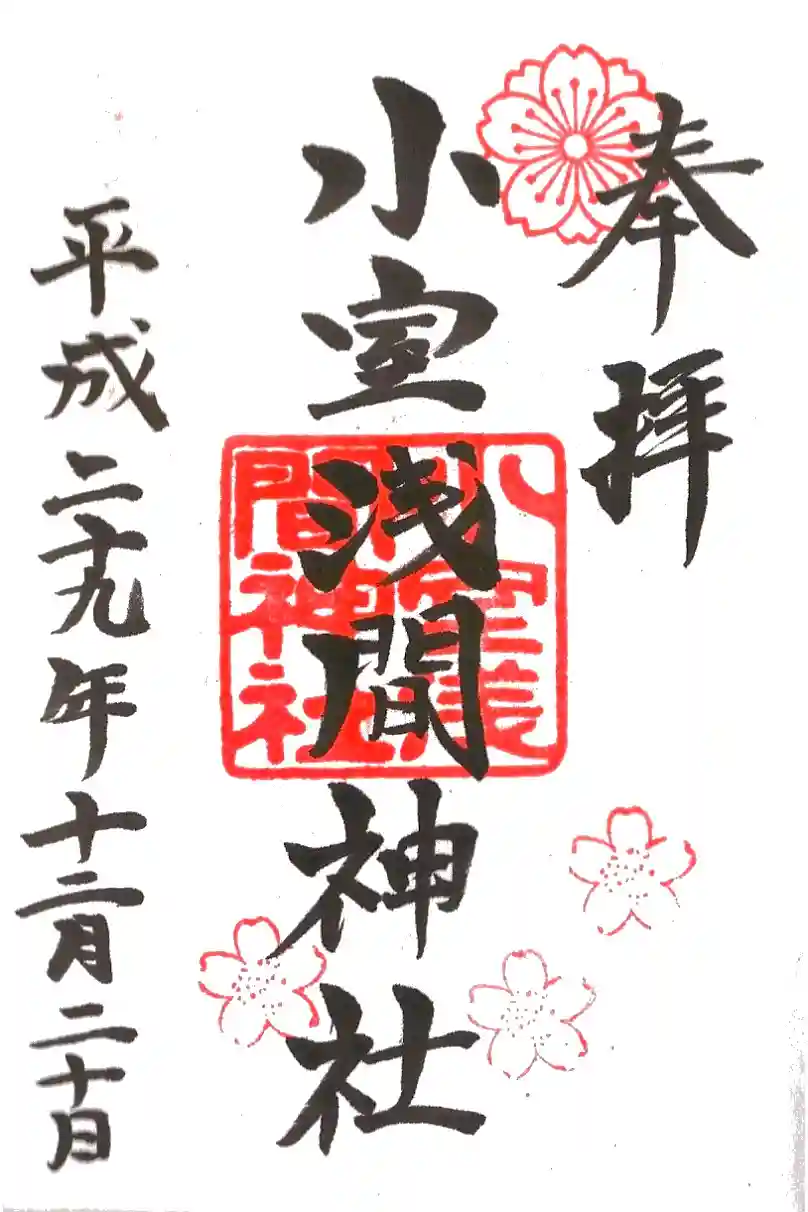 奉拝
小室浅間神社
小室浅間神社
平成二十九年十二月二十日